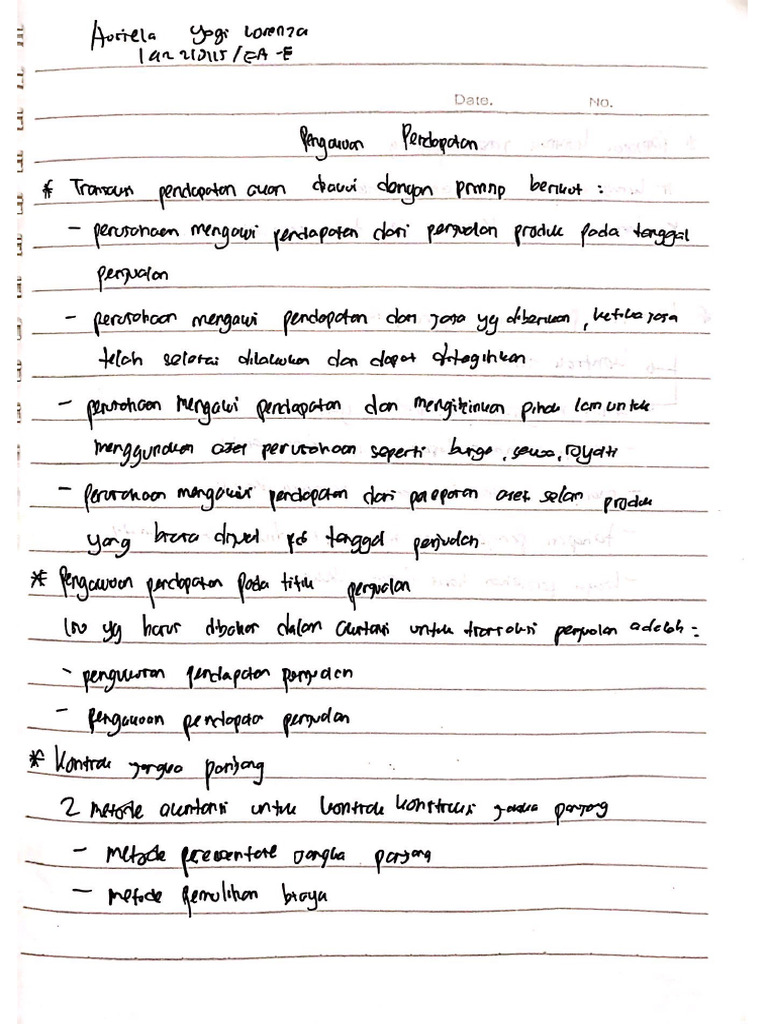 Auriela Yogi Lorenza
/ EA -E
Date. No.
Pengakuan Pendapatan
* Transaksi pendapatan akan diakui dengan prinsip berikut :
- perusahaan mengakui pendapatan dari penjualan produk pada tanggal
penjualan
- perusahaan mengakui pendapatan dari jasa yg diberikan, ketika jasa
telah selesai dilakukan dan dapat ditagihkan
- perusahaan mengakui pendapatan dari mengizinkan pihak lain untuk
menggunakan aset perusahaan seperti bunga, sewa, royalti
- perusahaan mengakui pendapatan dari pelepasan aset selain produk
yang biasa dijual pd tanggal penjualan
* Pengakuan pendapatan pada titik penjualan
Isu yg harus dibahas dalam akuntansi untuk transaksi penjualan adalah :
- pengukuran pendapatan penjualan
- pengakuan pendapatan penjualan
* Kontrak jangka panjang
2 metode akuntansi untuk kontrak konstruksi jangka panjang
- metode persentase jangka panjang
- metode pemulihan biaya